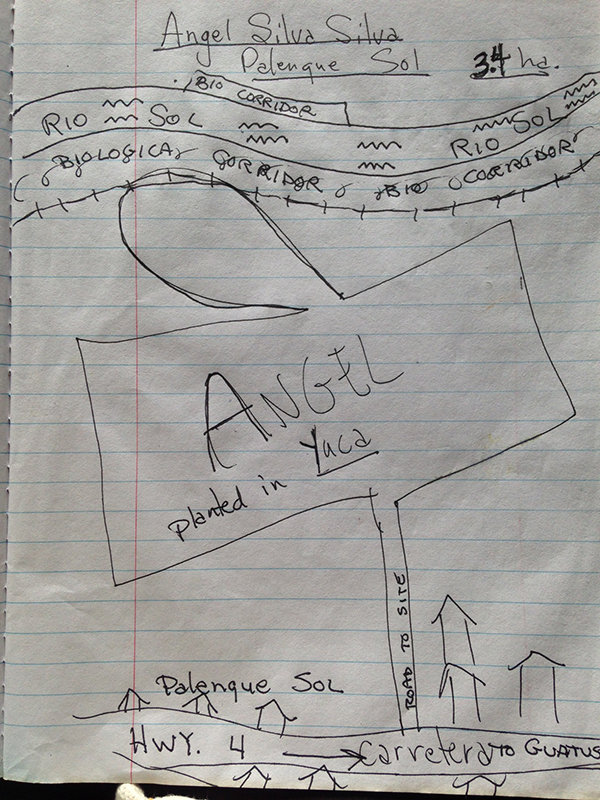 Angel Silva Silva
Palenque Sol 3.4 ha.
BIO CORRIDOR
RIO SOL
RIO SOL
BIOLOGICAL CORRIDOR BIO CORRIDOR
ANGEL
planted in Yuca
ROAD TO SITE
Palenque SOL
HWY. 4 Carretera TO GUATUS